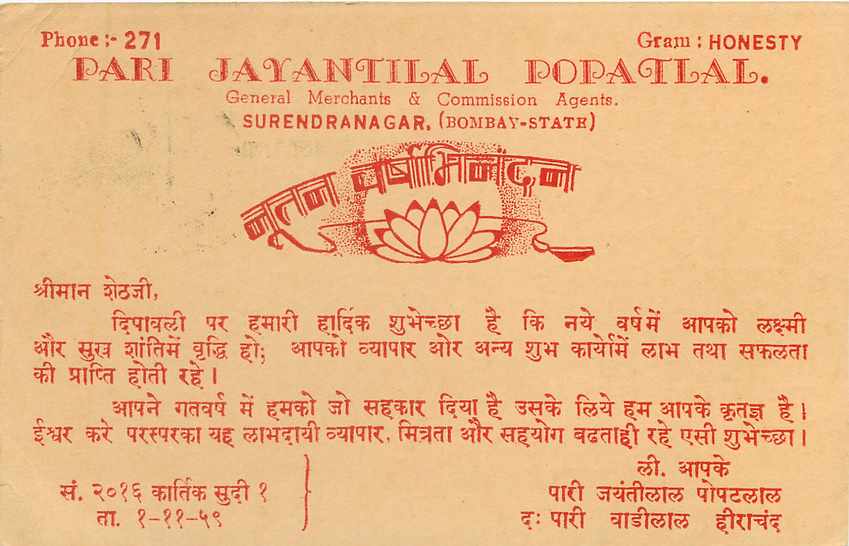 Phone :- 271
Gram : HONESTY
PARI JAYANTILAL POPATLAL.
General Merchants & Commission Agents.
SURENDRANAGAR. (BOMBAY-STATE)
नूतन वर्षाभिनंदन
श्रीमान शेठजी,
दिपावली पर हमारी हार्दिक शुभेच्छा है कि नये वर्षमें आपको लक्ष्मी
और सुख शांतिमें वृद्धि हो; आपको व्यापार ओर अन्य शुभ कार्यामें लाभ तथा सफलता
की प्राप्ति होती रहे ।
आपने गतवर्ष में हमको जो सहकार दिया है उसके लिये हम आपके कृतज्ञ है ।
ईश्वर करे परस्परका यह लाभदायी व्यापार, मित्रता और सहयोग बढताही रहे एसी शुभेच्छा ।
ली. आपके
सं. २०१६ कार्तिक सुदी १
पारी जयंतीलाल पोपटलाल
ता. १-११-५९
दः पारी वाडीलाल हीराचंद